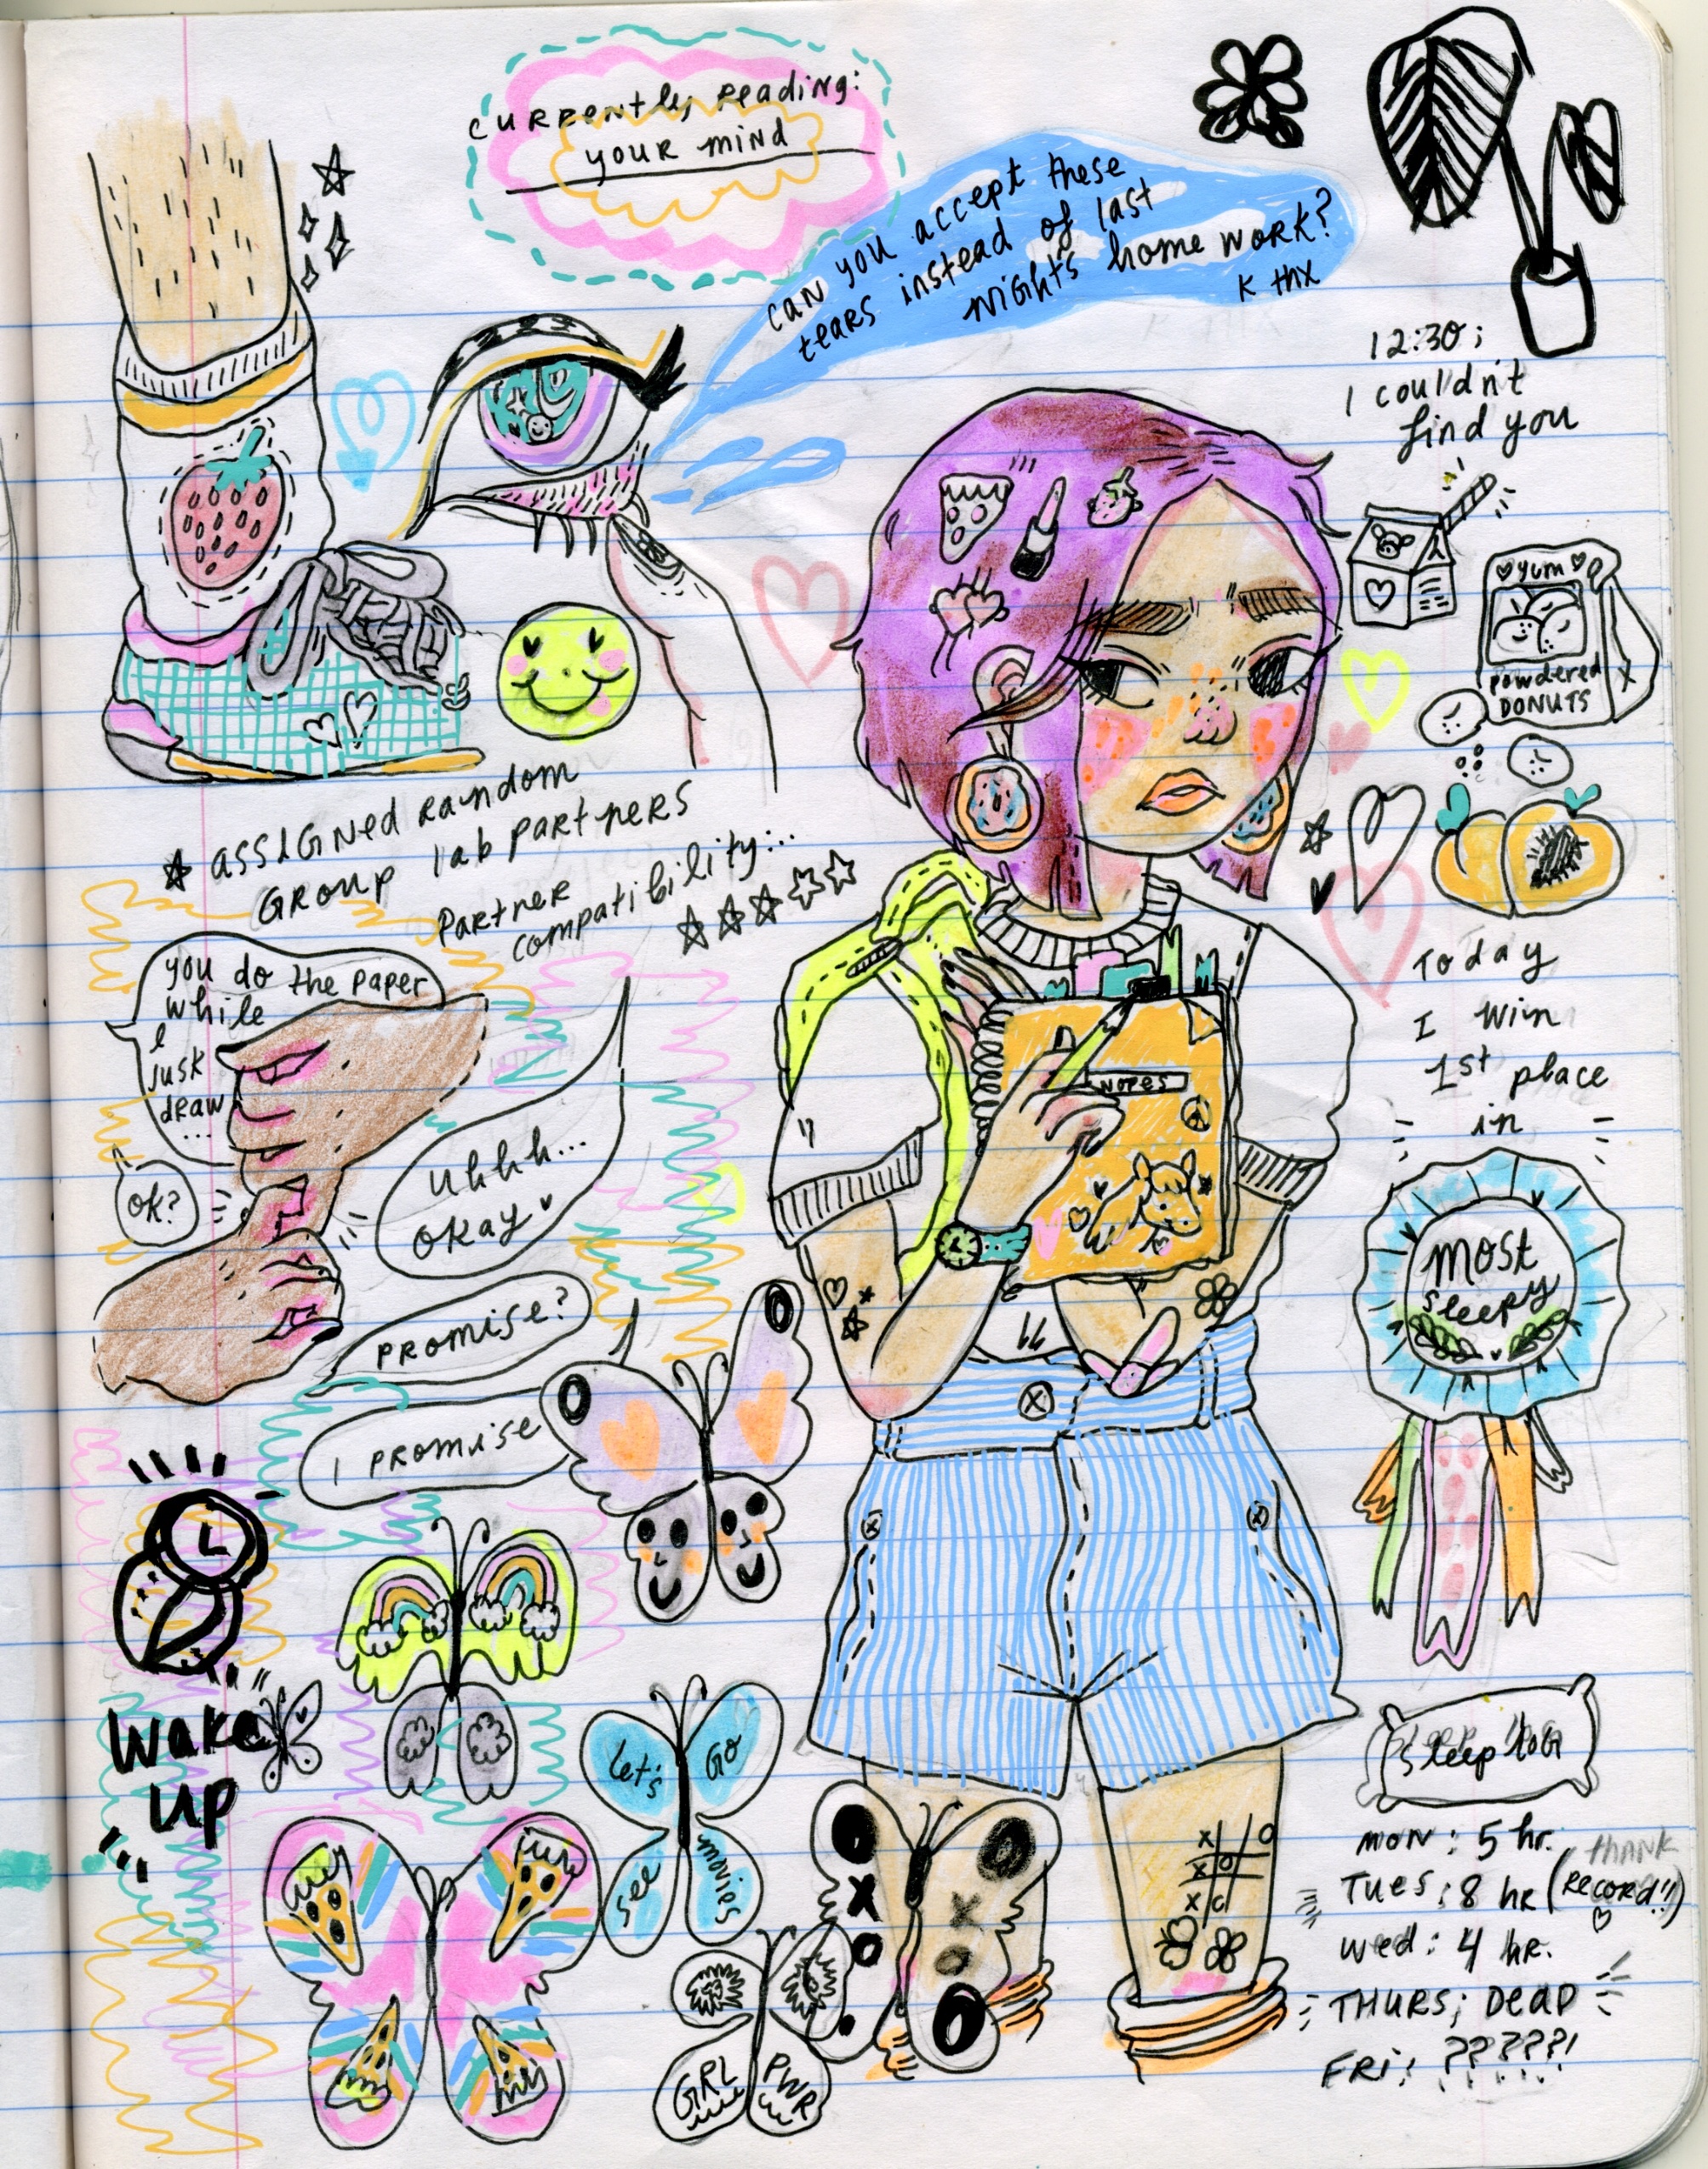 currently reading:
your mind
can you accept these
tears instead of last
nights home work?
k thx
12:30;
I couldn't
find you
yum
powdered
DONUTS
assigned random
Group lab partners
Partner
compatibility:..
you do the paper
while
I
jusk
draw
...
ok?
uhhh...
okay
promise?
I promise
NOPES
Today
I win
1st place
in
most
sleepy
wake
up
Let's
GO
see
movies
GRL
PWR
X
O
X
O
X
O
X O
X O
sleep log
mon: 5 hr.
Tues: 8 hr (Record!!)
thank
wed: 4 hr.
THURS; DEAD
FRI: ?????!